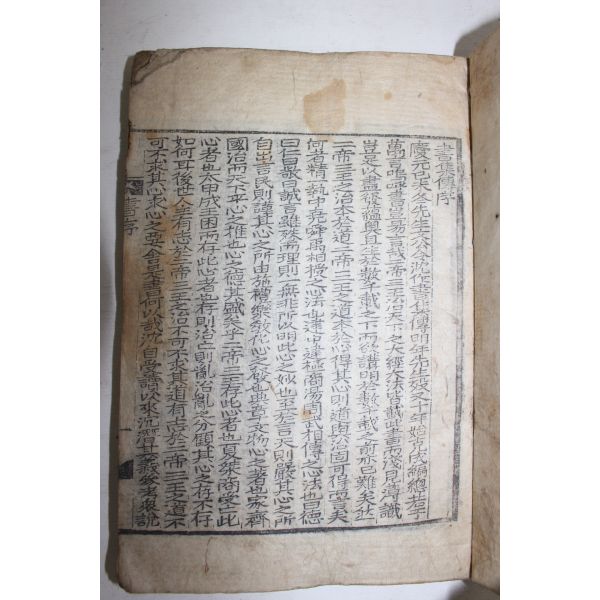 書集傳序
慶元己未冬先生文公令沈作書集傳明年先生歿又十年始克成編總若干
萬言嗚呼書豈易言哉二帝三王治天下之大經大法皆載此書而淺見薄識
豈足以盡發蘊奧且生於數千載之下而欲講明於數千載之前亦已難矣然
二帝三王之治本於道二帝三王之道本於心得其心則道與治固可得而言矣
何者精一執中堯舜禹相授之心法也建中建極商湯周武相傳之心法也曰德
曰仁曰敬曰誠言雖殊而理則一無非所以明此心之妙也至於言天則嚴其心之所
自出言民則謹其心之所由施禮樂敎化心之發也典章文物心之著也家齊
國治而天下平心之推也心之德其盛矣乎二帝三王存此心者也夏桀商受亡此
心者也太甲成王困而存此心者也存則治亡則亂治亂之分顧其心之存不存
如何耳後世人主有志於二帝三王之治不可不求其道有志於二帝三王之道不
可不求其心求心之要舍是書何以哉沈自受讀以來沉潛其義參考衆說
書序